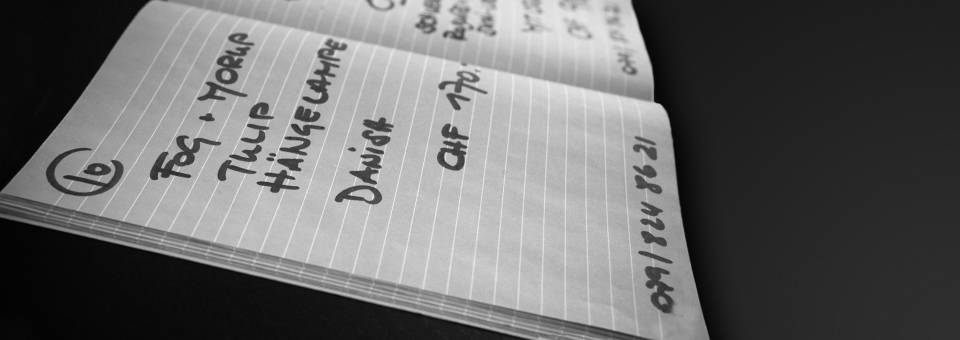 10
FOG + MORUP
TULIP
HÄNGELAMPE
DANISH
CHF 170.-
079/824 86 21